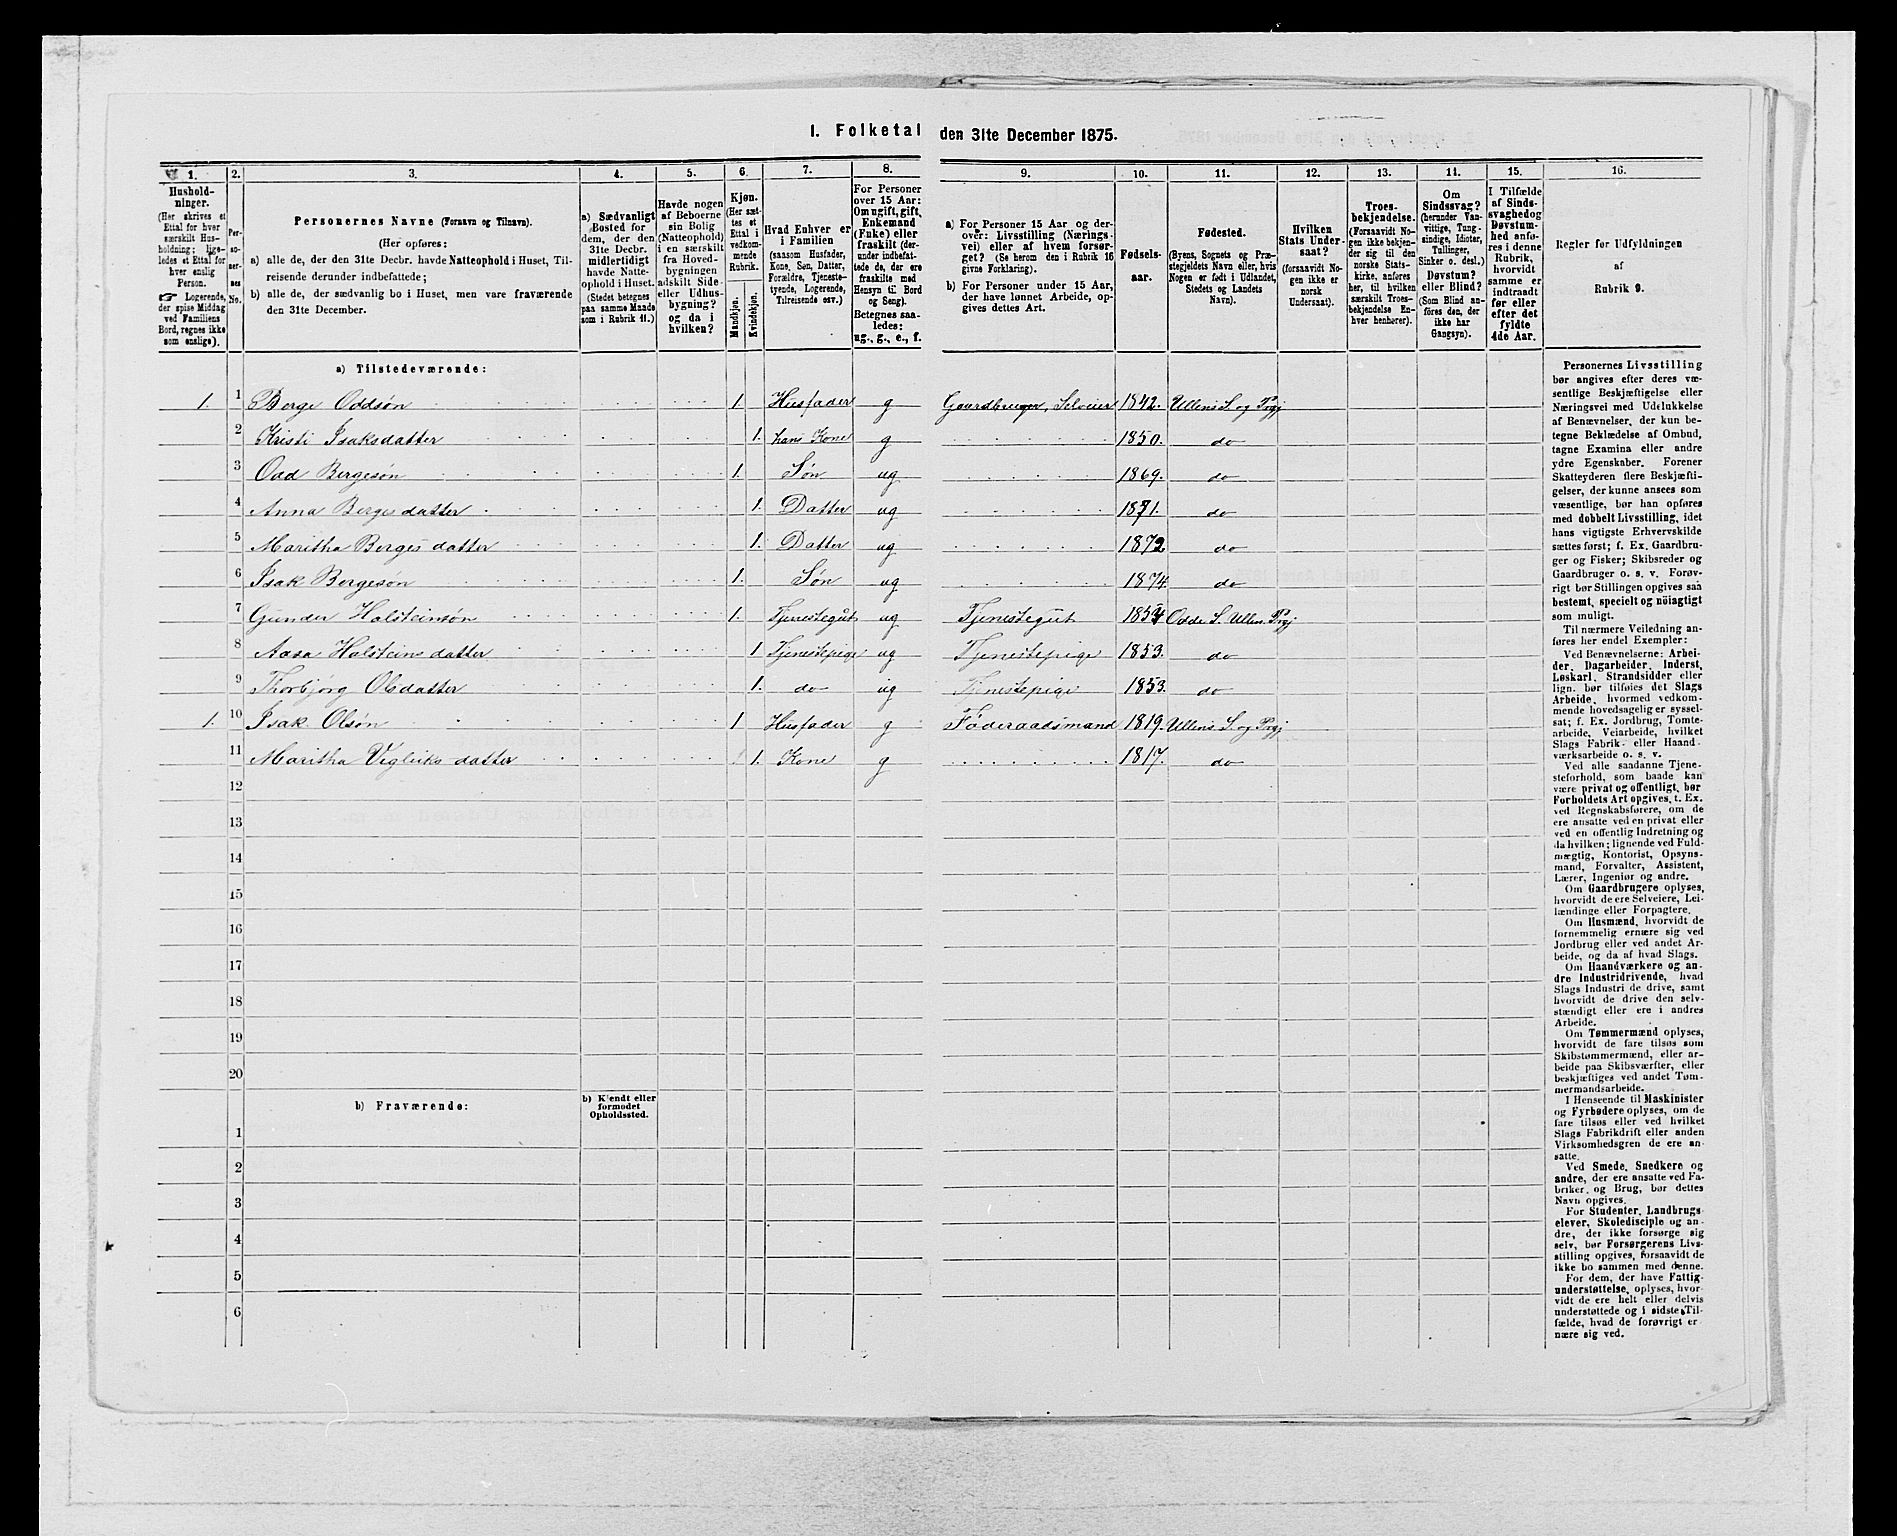 I. Folketal den 31te December 1875.
1. 2. 3. 4. 5. 6. 7. 8. 9. 10. 11. 12. 13. 14. 15. 16.
Hushold-
ninger.
(Her skrives et
Ettal for hver
særskilt Hus-
holdning; lige-
ledes et Ettal for
hver enslig
Person.
☞ Logerende,
der spise Middag
ved Familiens
Bord, regnes ikke
som enslige).
Per-
so-
ner-
nes
No.
Personernes Navne (Fornavn og Tilnavn).
(Her opføres:
a) alle de, der den 31te Decbr. havde Natteophold i Huset, Til-
reisende derunder indbefattede;
b) alle de, der sædvanlig bo i Huset, men vare fraværende
den 31te December.
a) Sædvanligt
Bosted for
dem, der den
31te Decbr.
midlertidigt
havde Natte-
ophold i Huset.
(Stedet betegnes
paa samme Maade
som i Rubrik 11.)
Havde nogen
af Beboerne
sin Bolig
(Natteophold)
i en særskilt
fra Hoved-
bygningen
adskilt Side-
eller Udhus-
bygning?
og da i
hvilken?
Kjøn.
(Her sæt-
tes et
Ettal i
vedkom-
mende
Rubrik.
Mandkjøn.
Kvindekjøn.
Hvad Enhver er
i Familien
(saasom Husfader,
Kone, Søn, Datter,
Forældre, Tjeneste-
tyende, Logerende,
Tilreisende osv.)
For Personer
over 15 Aar:
Om ugift, gift,
Enkemand
(Enke) eller
fraskilt (der-
under indbefat-
tede de, der ere
fraskilte med
Hensyn til Bord
og Seng).
Betegnes saa-
ledes:
ug., g., e., f.
a) For Personer 15 Aar og der-
over: Livsstilling (Nærings-
vei) eller af hvem forsør-
get? (Se herom den i Rubrik 16
givne Forklaring).
b) For Personer under 15 Aar,
der have lønnet Arbeide, op-
gives dettes Art.
Fødsels-
aar.
Fødested.
(Byens, Sognets og Præ-
stegjeldets Navn eller, hvis
Nogen er født i Udlandet,
Stedets og Landets
Navn).
Hvilken
Stats Under-
saat?
(forsaavidt No-
gen ikke er
norsk
Undersaat).
Troes-
bekjendelse.
(Forsaavidt No-
gen ikke bekjen-
der sig til den
norske Stats-
kirke, anføres
her, til hvilken
særskilt Troes-
bekjendelse En-
hver henhører).
Om
Sindssvag?
(herunder Van-
vittige, Tung-
sindige, Idioter,
Tullinger,
Sinker o. desl.)
Døvstum?
eller Blind?
(Som Blind an-
føres den, der
ikke har
Gangsyn).
I Tilfælde
af Sinds-
svaghed og
Døvstum-
hed anfø-
res i denne
Rubrik,
hvorvidt
samme er
indtraadt
før eller
efter det
fyldte
4de Aar.
Regler for Udfyldningen
af
Rubrik 9.
a) Tilstedeværende:
1. 1 Berge Oddsøn 1. Husfader g Gaardbruger, Selveier 1842. Ullens S. og Prgj
2 Kristi Isaksdatter 1. hans Kone g 1850. do
3 Odd Bergesøn 1. Søn ug 1869. do
4 Anna Bergesdatter 1. Datter ug 1871. do
5 Maritha Bergesdatter 1. Datter ug 1872 do
6 Isak Bergesøn 1. Søn ug 1874. do
7 Gunder Holsteinsøn 1. Tjenestegut ug Tjenestegut 1854 Odde S. Ullens Prgj
8 Aasa Holsteinsdatter 1 Tjenestepige ug Tjenestepige 1853. do
9 Thorbjörg Olsdatter 1. do ug Tjenestepige 1853. do
1. 10 Isak Olsøn 1 Husfader g Föderaadsmand 1819. Ullens S. og Prgj
11 Maritha Vigleiksdatter 1. Kone g 1817. do
12
13
14
15
16
17
18
19
20
b) Fraværende:
b) Kjendt eller
formodet
Opholdssted.
1
2
3
4
5
6
Personernes Livsstilling
bør angives efter deres væ-
sentlige Beskjæftigelse eller
Næringsvei med Udelukkelse
af Benævnelser, der kun be-
tegne Beklædelse af Ombud,
tagne Examina eller andre
ydre Egenskaber. Forener
Skatteyderen flere Beskjæfti-
gelser, der kunne ansees som
væsentlige, bør han opføres
med dobbelt Livsstilling, idet
hans vigtigste Erhvervskilde
sættes først; f. Ex. Gaardbru-
ger og Fisker; Skibsreder og
Gaardbruger o. s. v. Forøv-
rigt bør Stillingen opgives saa
bestemt, specielt og nöiagtigt
som muligt.
Til nærmere Veiledning an-
føres her endel Exempler:
Ved Benævnelserne: Arbei-
der, Dagarbeider, Inderst,
Løskarl, Strandsidder eller
lign. bør tilføies det Slags
Arbeide, hvormed vedkom-
mende hovedsagelig er syssel-
sat; f. Ex. Jordbrug, Tomte-
arbeide, Veiarbeide, hvilket
Slags Fabrik- eller Haand-
værksarbeide o. s. v.
Ved alle saadanne Tjene-
steforhold, som baade kan
være privat og offentligt, bør
Forholdets Art opgives, t. Ex.
ved Regnskabsførere, om de
ere ansatte ved en privat eller
ved en offentlig Indretning og
da hvilken; lignende ved Fuld-
mægtig, Kontorist, Opsyns-
mand, Forvalter, Assistent,
Lærer, Ingeniør og andre.
Om Gaardbrugere oplyses,
hvorvidt de ere Selveiere, Lei-
lændinge eller Forpagtere.
Om Husmænd, hvorvidt de
fornemmelig ernære sig ved
Jordbrug eller ved andet Ar-
beide, og da af hvad Slags.
Om Haandværkere og an-
dre Industridrivende, hvad
Slags Industri de drive, samt
hvorvidt de drive den selv-
stændigt eller ere i andres
Arbeide.
Om Tømmermænd oplyses,
hvorvidt de fare tilsøs som
Skibstømmermænd, eller ar-
beide paa Skibsværfter, eller
beskjæftiges ved andet Tøm-
mermandsarbeide.
I Henseende til Maskinister
og Fyrbødere oplyses, om de
fare tilsøs eller ved hvilket
Slags Fabrikdrift eller anden
Virksomhedsgren de ere an-
satte.
Ved Smede, Snedkere og
andre, der ere ansatte ved Fa-
briker og Brug, bør dettes
Navn opgives.
For Studenter, Landbrugs-
elever, Skoledisciple og an-
dre, der ikke forsørge sig
selv, bør Forsørgerens Livs-
stilling opgives, forsaavidt de
ikke bo sammen med denne.
For dem, der have Fattig-
understøttelse, oplyses, hvor-
vidt de ere helt eller delvis
understøttede og i sidste Til-
fælde, hvad de forøvrigt er-
nære sig ved.